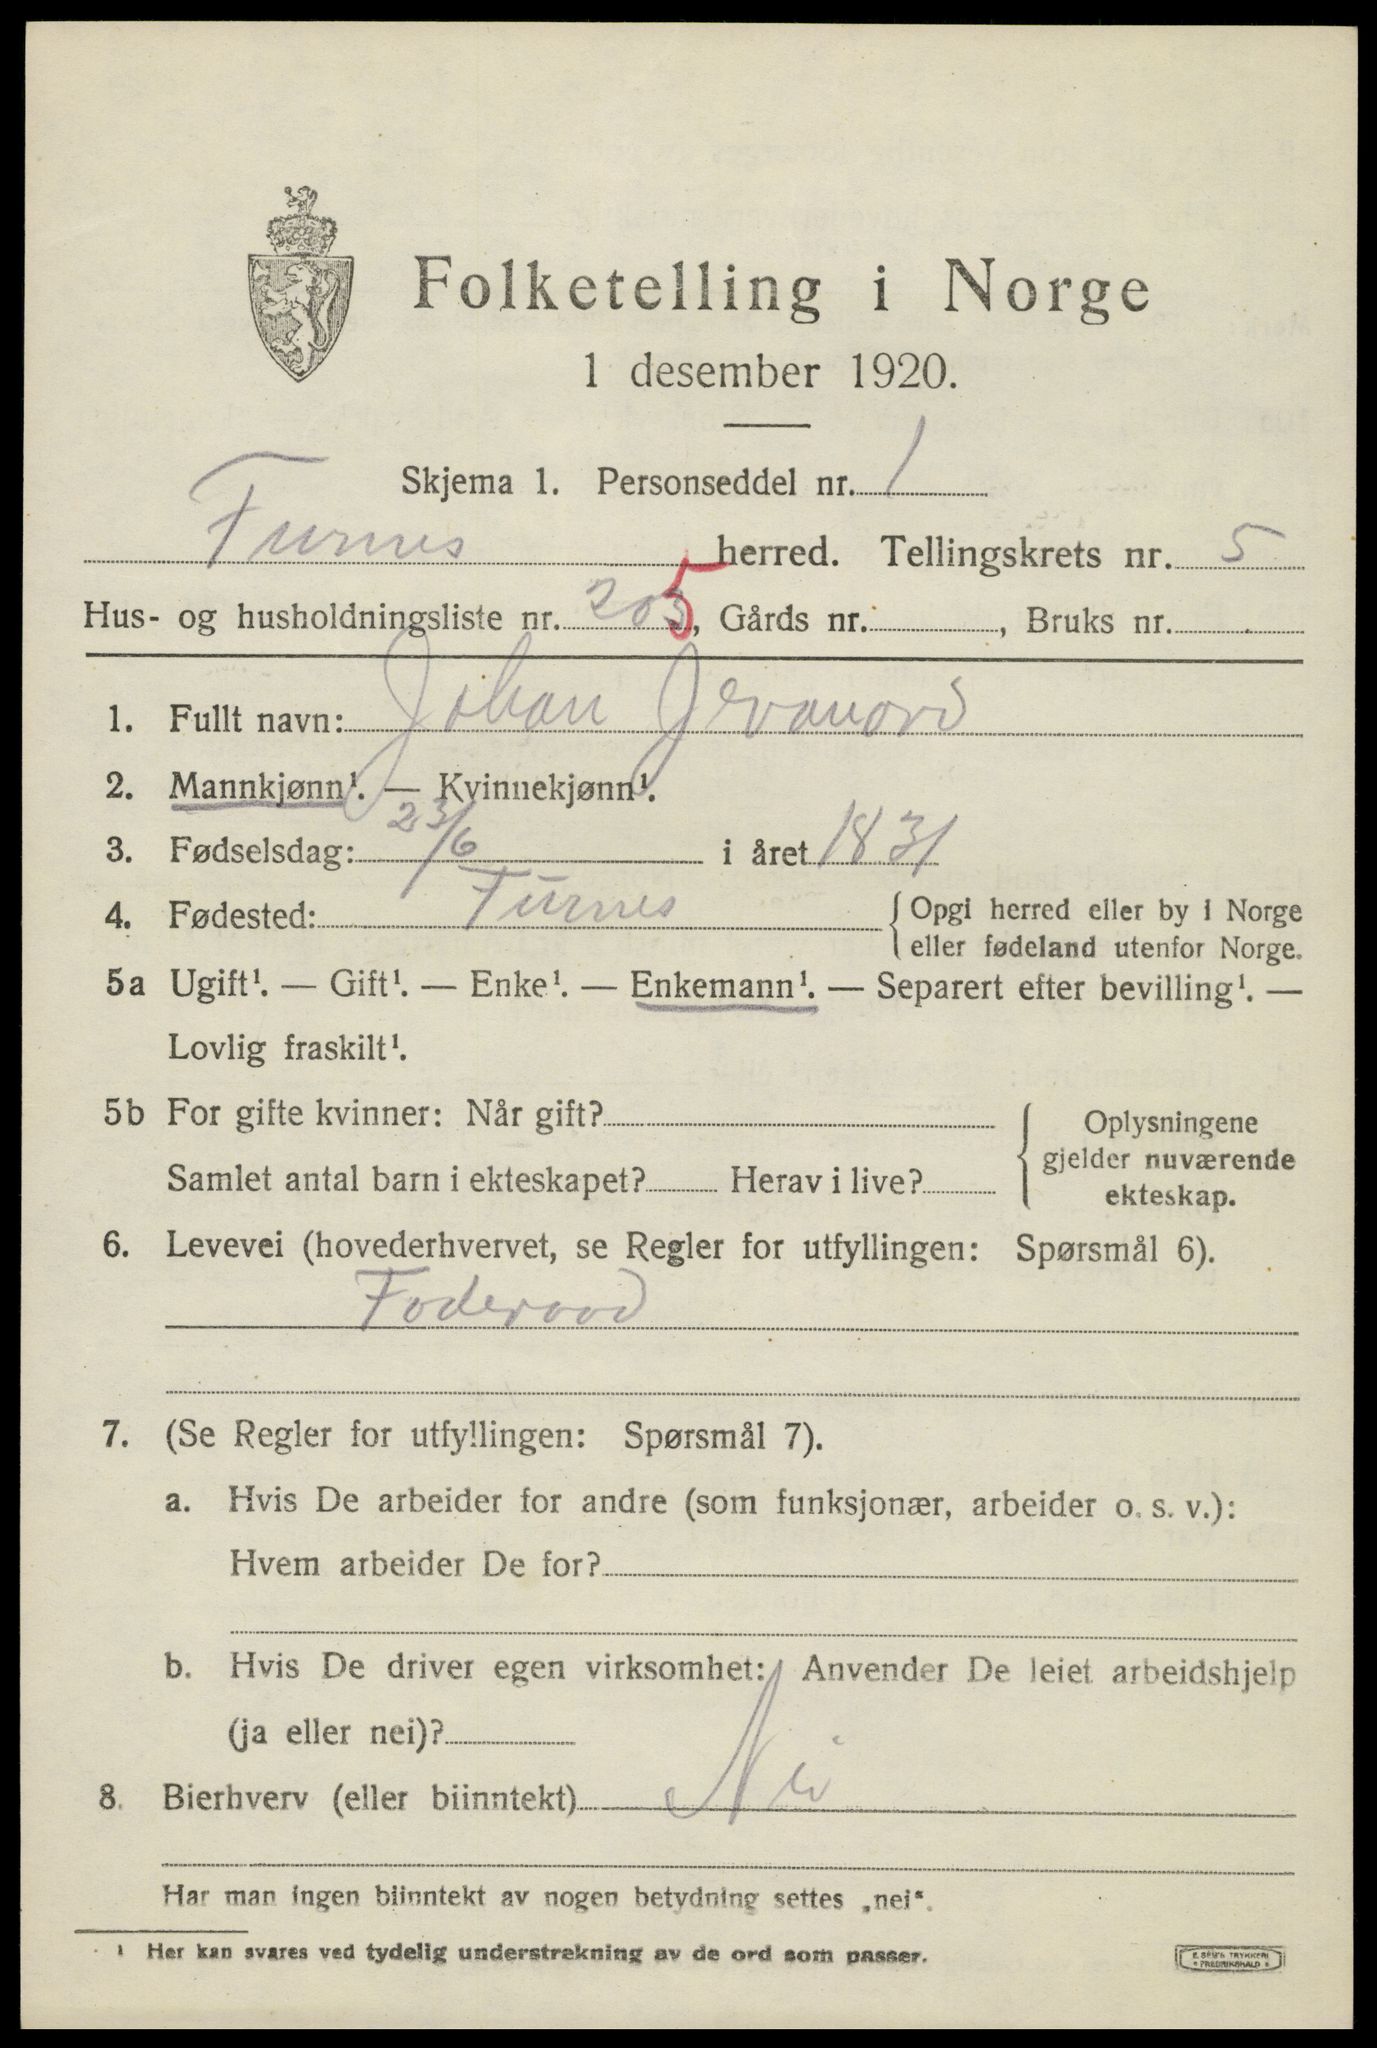 Folketelling i Norge
1 desember 1920.
Skjema 1. Personseddel nr. 1
Furnes herred. Tellingskrets nr. 5
Hus- og husholdningsliste nr. 205, Gårds nr. , Bruks nr.
1. Fullt navn: Johan
2. Mannkjønn¹. — Kvinnekjønn¹.
3. Fødselsdag: 23/6 i året 1831
4. Fødested: Furnes { Opgi herred eller by i Norge
eller fødeland utenfor Norge.
5a Ugift¹. — Gift¹. — Enke¹. — Enkemann¹. — Separert efter bevilling¹. —
Lovlig fraskilt¹.
5b For gifte kvinner: Når gift? { Oplysningene
gjelder nuværende
Samlet antal barn i ekteskapet? Herav i live?
ekteskap.
6. Levevei (hovederhvervet, se Regler for utfyllingen: Spørsmål 6).
Foderaad
7. (Se Regler for utfyllingen: Spørsmål 7).
a. Hvis De arbeider for andre (som funksjonær, arbeider o. s. v.):
Hvem arbeider De for?
b. Hvis De driver egen virksomhet: Anvender De leiet arbeidshjelp
(ja eller nei)?
8. Bierhverv (eller biinntekt) Nei
Har man ingen biinntekt av nogen betydning settes „nei“.
¹ Her kan svares ved tydelig understrekning av de ord som passer.
E. SEM'S TRYKKERI
* FREDRIKSHALD *